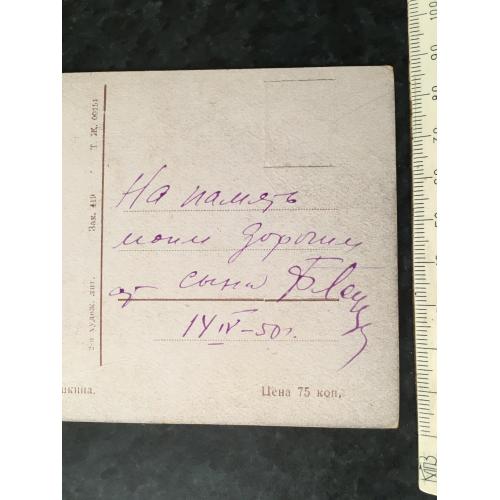 На память
моим дорогим
от сына
14 IV-50г.
Цена 75 коп.
шкина.
2-я худож. лит.
Зак. 419
Т. Ж. 00151
100
90
80
70
60
50
40
30
20
10